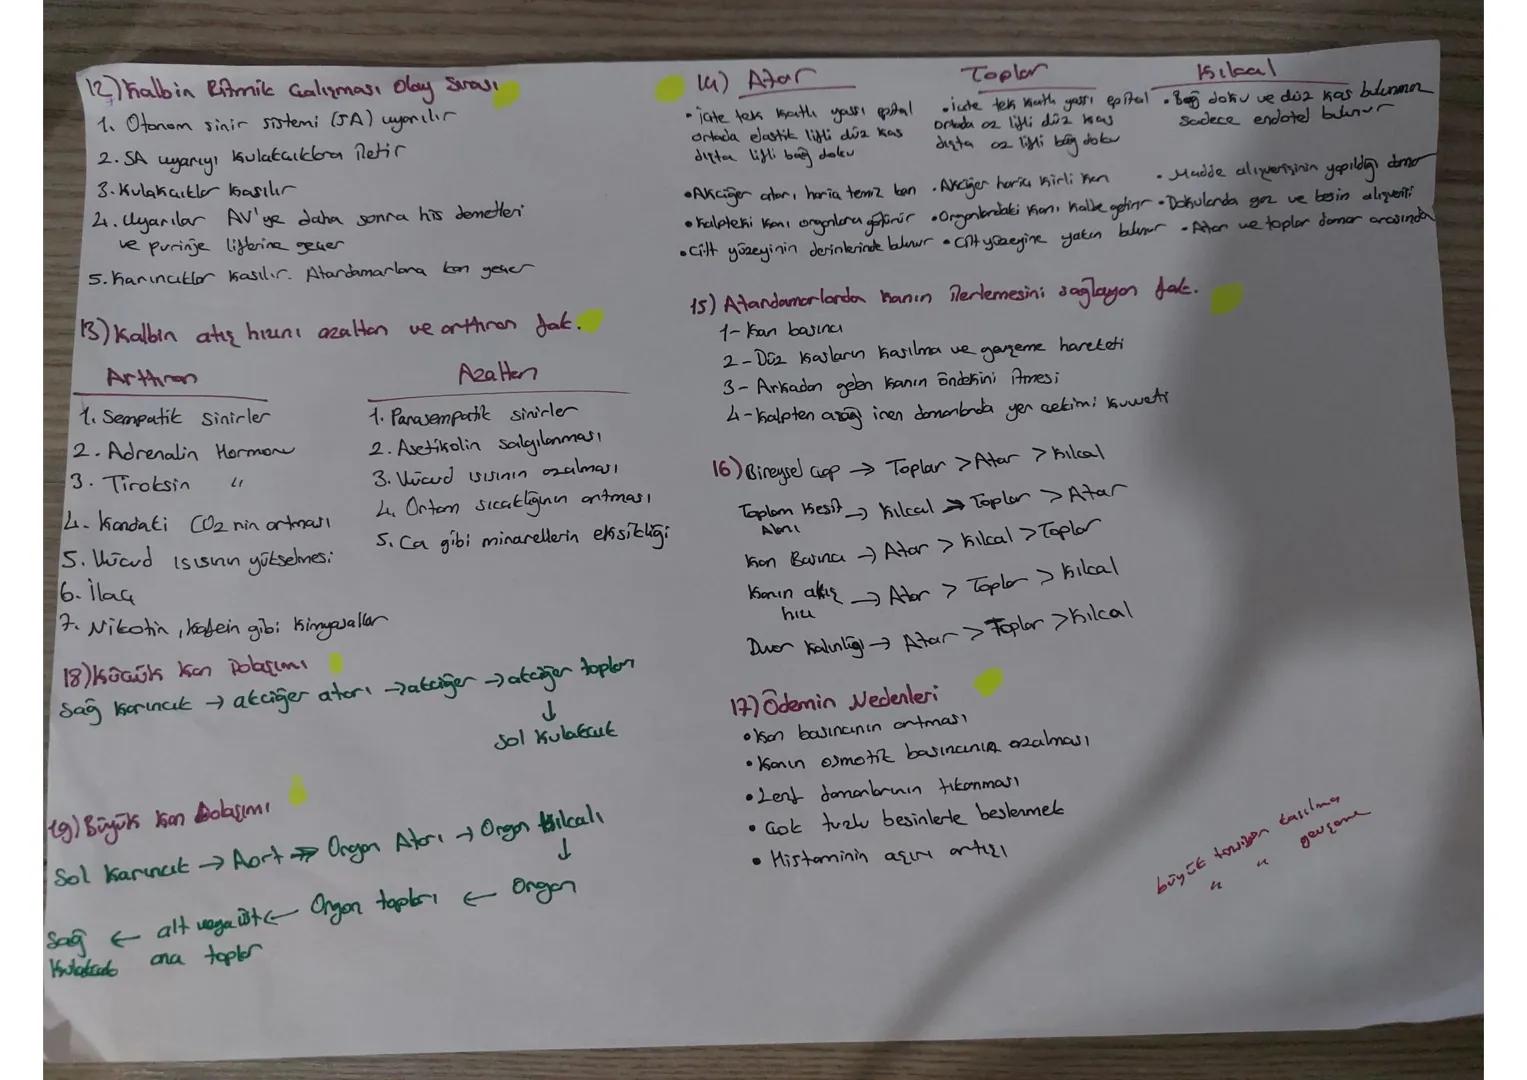 12) Kalbin Ritmik Çalışması Olay Sırası
1. Otonom sinir sistemi (SA) uyarılır
2. SA uyarıyı kulakçıklara iletir
3. Kulakçıklar kasılır
4. Uyarılar AV'ye daha sonra his demetleri
ve purinje liflerine geçer
5. Karıncıklar kasılır. Atardamarlara kan geçer
13) Kalbin atış hızını azaltan ve arttıran fak.
Arttıran
1. Sempatik sinirler
2. Adrenalin Hormonu
3. Tiroksin "
4. Kandaki CO2 nin artması
5. Vücud ısısının yükselmesi
6. İlaç
7. Nikotin, kafein gibi kimyasallar
Azaltan
1. Parasempatik sinirler
2. Asetikolin salgılanması
3. Vücud ısısının azalması
4. Ortam sıcaklığının artması
5. Ca gibi minarellerin eksikliği
18) Küçük Kan Dolaşımı
Sağ karıncık → akciğer atarı → akciğer → akciğer toplar
↓
Sol kulakcık
19) Büyük Kan Dolaşımı
Sol Karıncık → Aort → Organ Atarı → Organ kılcalı
↓
Sağ ← alt veya üst ← Organ topları ← Organ
Kulakcık ana toplar
14) Atar
• içte tek katlı yassı epital
ortada elastik lifli düz kas
dışta lifli bağ doku
• Akciğer atarı, hariç temiz kan
• Kalpteki kanı organlara götürür
• Cilt yüzeyinin derinlerinde bulunur
Toplar
• içte tek katlı yassı epital
Ortada az lifli düz kas
dışta az lifli bağ doku
• Akciğer hariç kirli kan
• Organlardaki kanı kalbe getirir
• Cilt yüzeyine yakın bulunur
Kılcal
• Bağ doku ve düz kas bulunmaz
sadece endotel bulunur
• Madde alışverişinin yapıldığı damar
• Dokularda gaz ve besin alışverişi
• Atar ve toplar damar arasında
15) Atardamarlarda kanın ilerlemesini sağlayan fak.
1- Kan basıncı
2- Düz kasların kasılma ve gevşeme hareketi
3- Arkadan gelen kanın öndekini itmesi
4- Kalpten aşağı inen damarlarda yer çekimi kuvveti
16) Bireysel çap → Toplar > Atar > Kılcal
Toplam Kesit → Kılcal > Toplar > Atar
Alanı
Kan Basıncı → Atar > Kılcal > Toplar
Kanın akış → Atar > Toplar > Kılcal
hızı
Duvar Kalınlığı → Atar > Toplar > Kılcal
17) Ödemin Nedenleri
• Kan basıncının artması
• Kanın osmotik basıncının azalması
• Lenf damarlarının tıkanması
• Çok tuzlu besinlerle beslenmek
• Histaminin aşırı artışı
büyük tansiyon kasılma
" " gevşeme